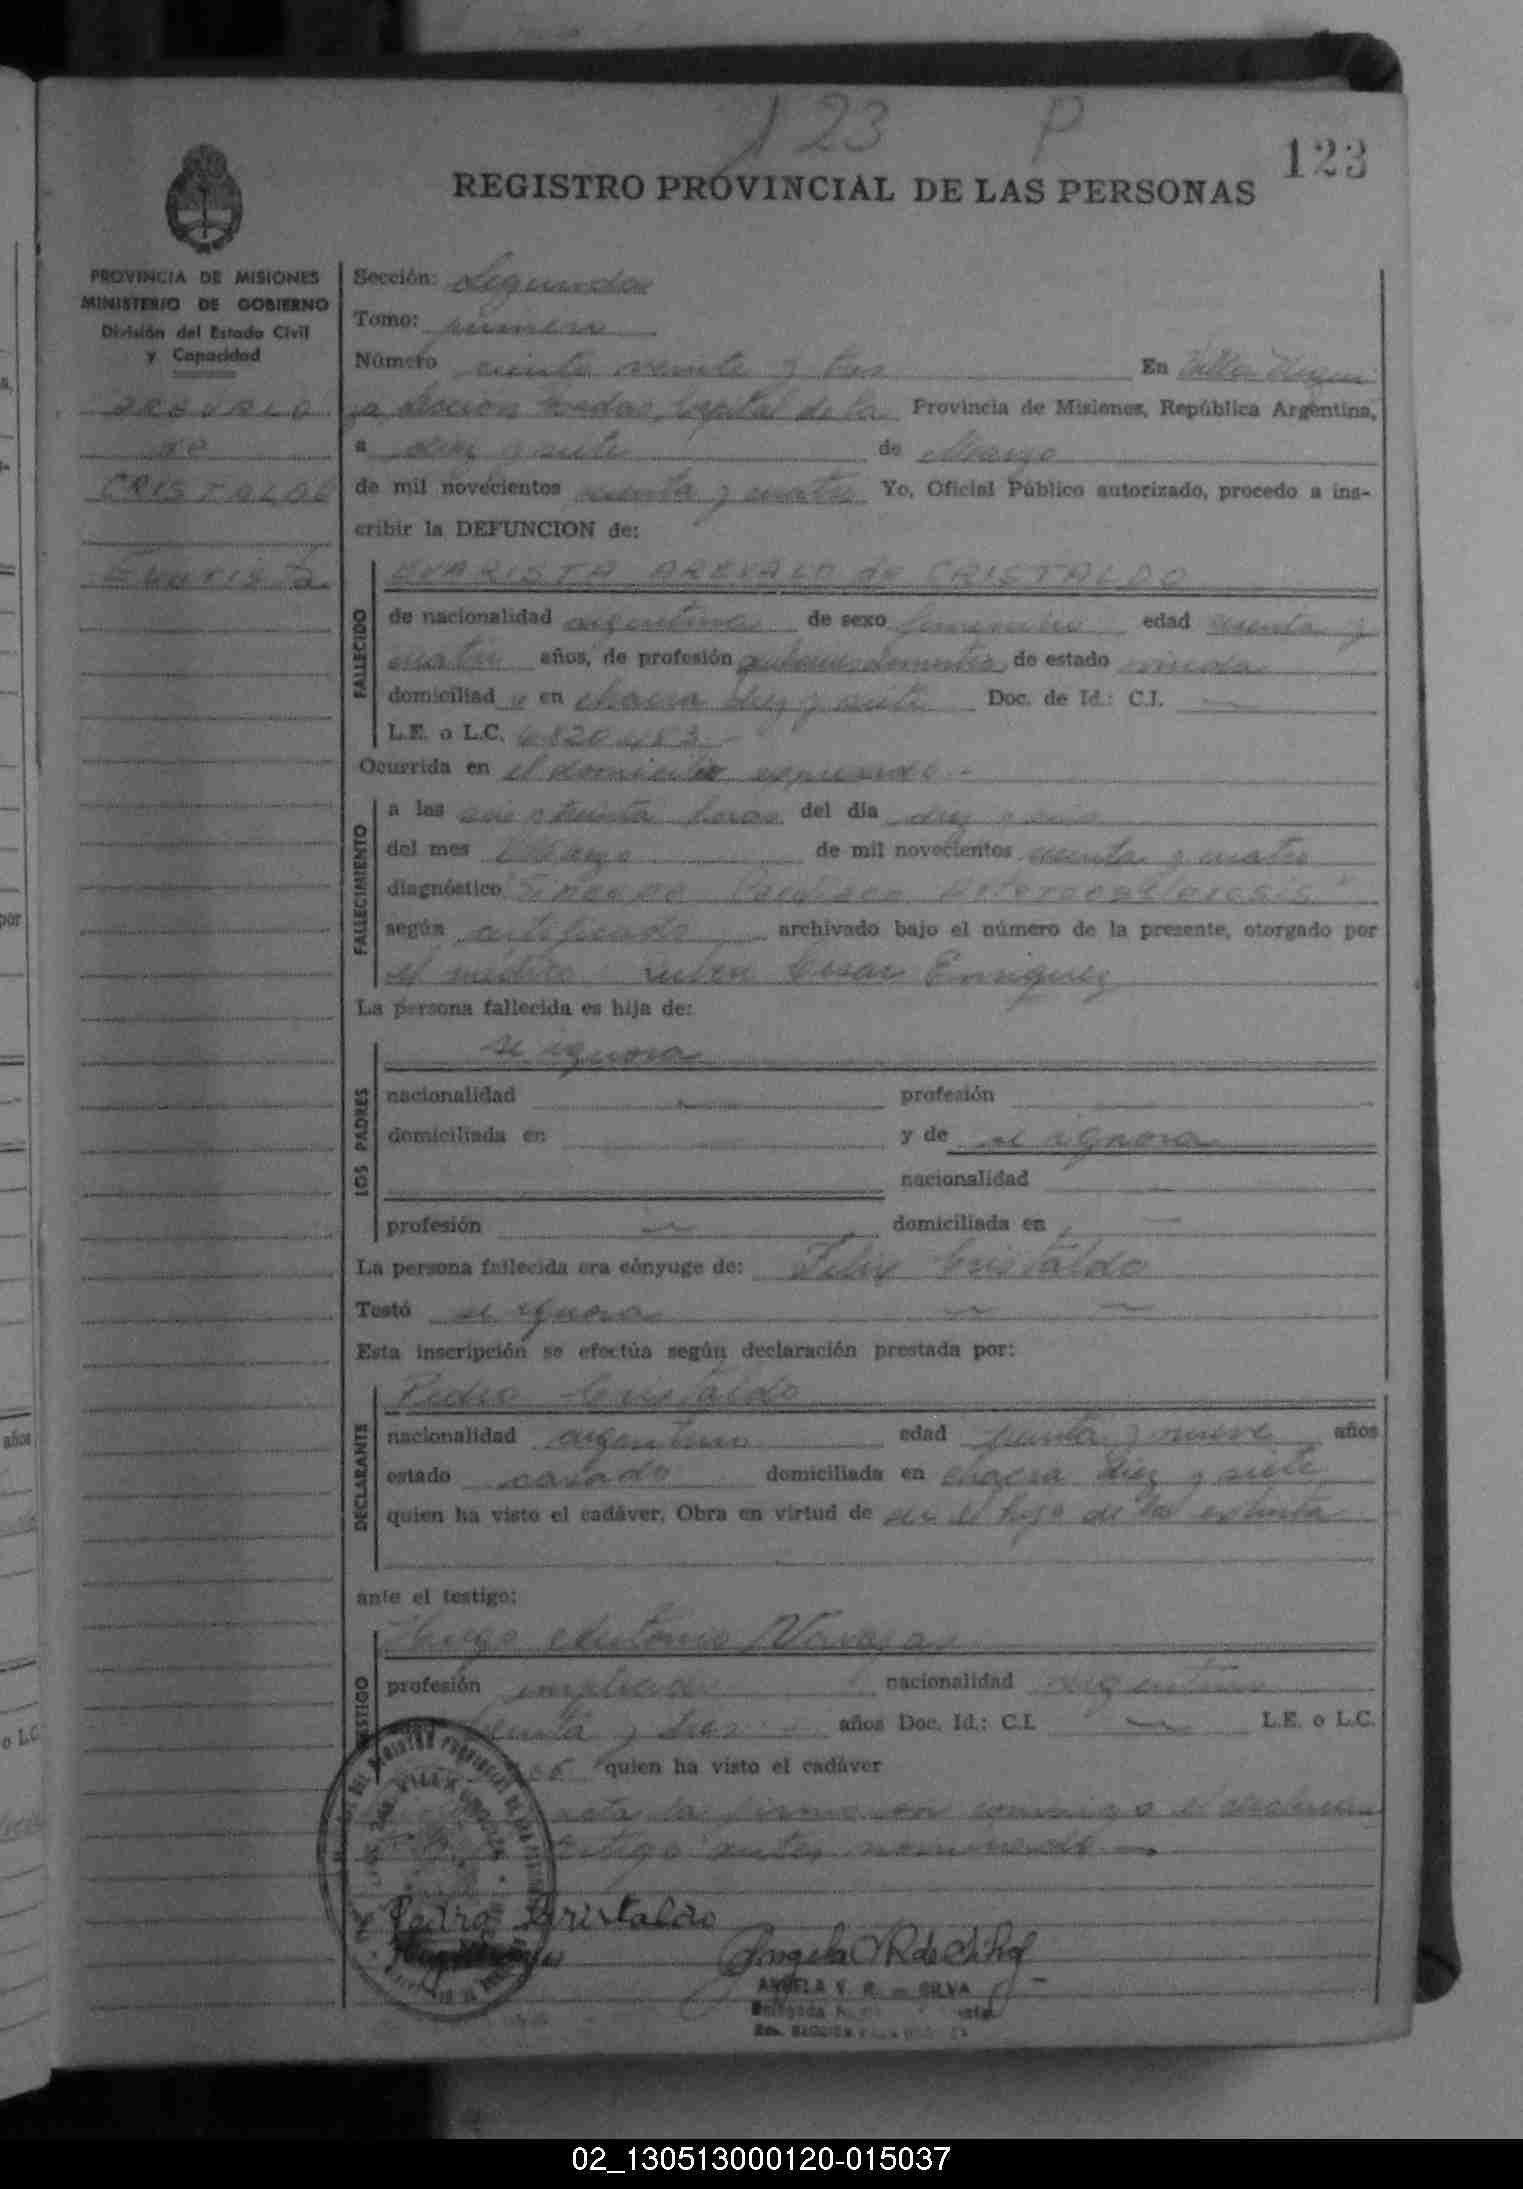 123 P
123
REGISTRO PROVINCIAL DE LAS PERSONAS
PROVINCIA DE MISIONES
MINISTERIO DE GOBIERNO
División del Estado Civil
y Capacidad
AREVALO
de
CRISTALDO
Evarista
Sección: Segunda
Tomo: primero
Número ciento veinte y tres En Villa Urqui
za Sección Posadas, Capital de la Provincia de Misiones, República Argentina,
a diez y siete de Marzo
de mil novecientos y cuatro Yo, Oficial Público autorizado, procedo a ins-
cribir la DEFUNCION de:
FALLECIDO
EVARISTA AREVALO de CRISTALDO
de nacionalidad argentina de sexo femenino edad y
cuatro años, de profesión quehaceres domesticos de estado viuda
domiciliad a en chacra diez y siete Doc. de Id.: C.I. —
L.E. o L.C. 6820483 -
Ocurrida en el domicilio expresado -
FALLECIMIENTO
a las seis y treinta horas del día diez y seis
del mes Marzo de mil novecientos y cuatro
diagnóstico "Sincope Cardiaco
según certificado archivado bajo el número de la presente, otorgado por
el médico Ruben Cesar Enriquez
La persona fallecida es hija de:
LOS PADRES
se ignora
nacionalidad — profesión —
domiciliada en — y de se ignora
nacionalidad —
profesión — domiciliada en —
La persona fallecida era cónyuge de: Felix Cristaldo
Testó se ignora — —
Esta inscripción se efectúa según declaración prestada por:
DECLARANTE
Pedro Cristaldo
nacionalidad argentino edad treinta y nueve años
estado casado domiciliada en chacra diez y siete
quien ha visto el cadáver. Obra en virtud de ser el hijo de la extinta
ante el testigo:
TESTIGO
Hugo Antonio
profesión empleado nacionalidad argentino
treinta y tres años Doc. Id.: C.I. — L.E. o L.C.
quien ha visto el cadáver
acta la firma con conmigo el declaran
testigo antes nombrado —
Pedro Cristaldo
Angela R de Silva
ANGELA V. R. de SILVA
02_130513000120-015037